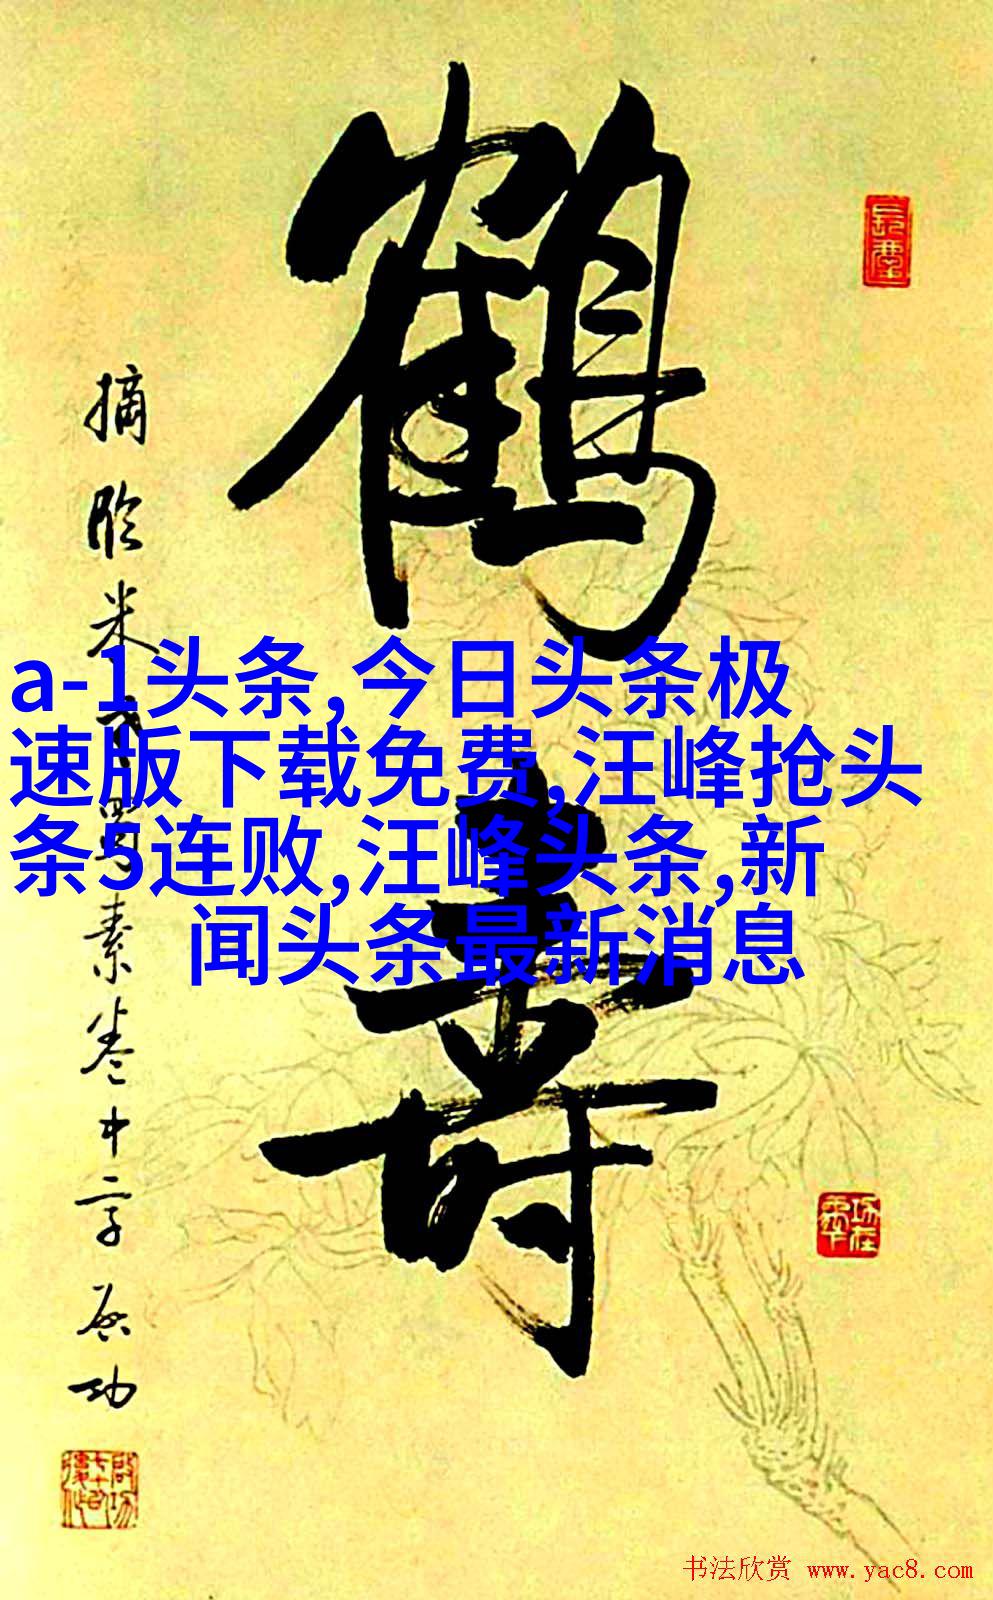 鹤寿
摘临米书蜀素卷中字 启功
a-1头条,今日头条极
速版下载免费,汪峰抢头
条5连败,汪峰头条,新
闻头条最新消息
书法欣赏 www.yac8.com